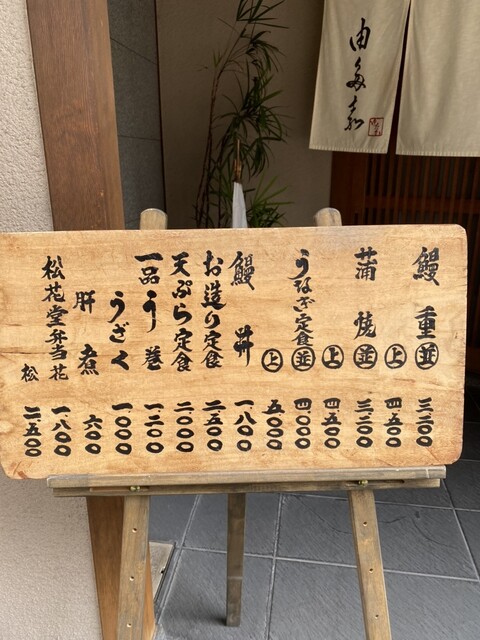 由多嘉
鰻重 並 三二〇〇
上 四五〇〇
蒲焼 並 三二〇〇
上 四五〇〇
うなぎ定食 並 四〇〇〇
上 五〇〇〇
鰻丼 一八〇〇
お造り定食 二五〇〇
天ぷら定食 二〇〇〇
一品う巻 一二〇〇
うざく 一〇〇〇
肝煮 六〇〇
松花堂弁当 花 一八〇〇
松 二五〇〇